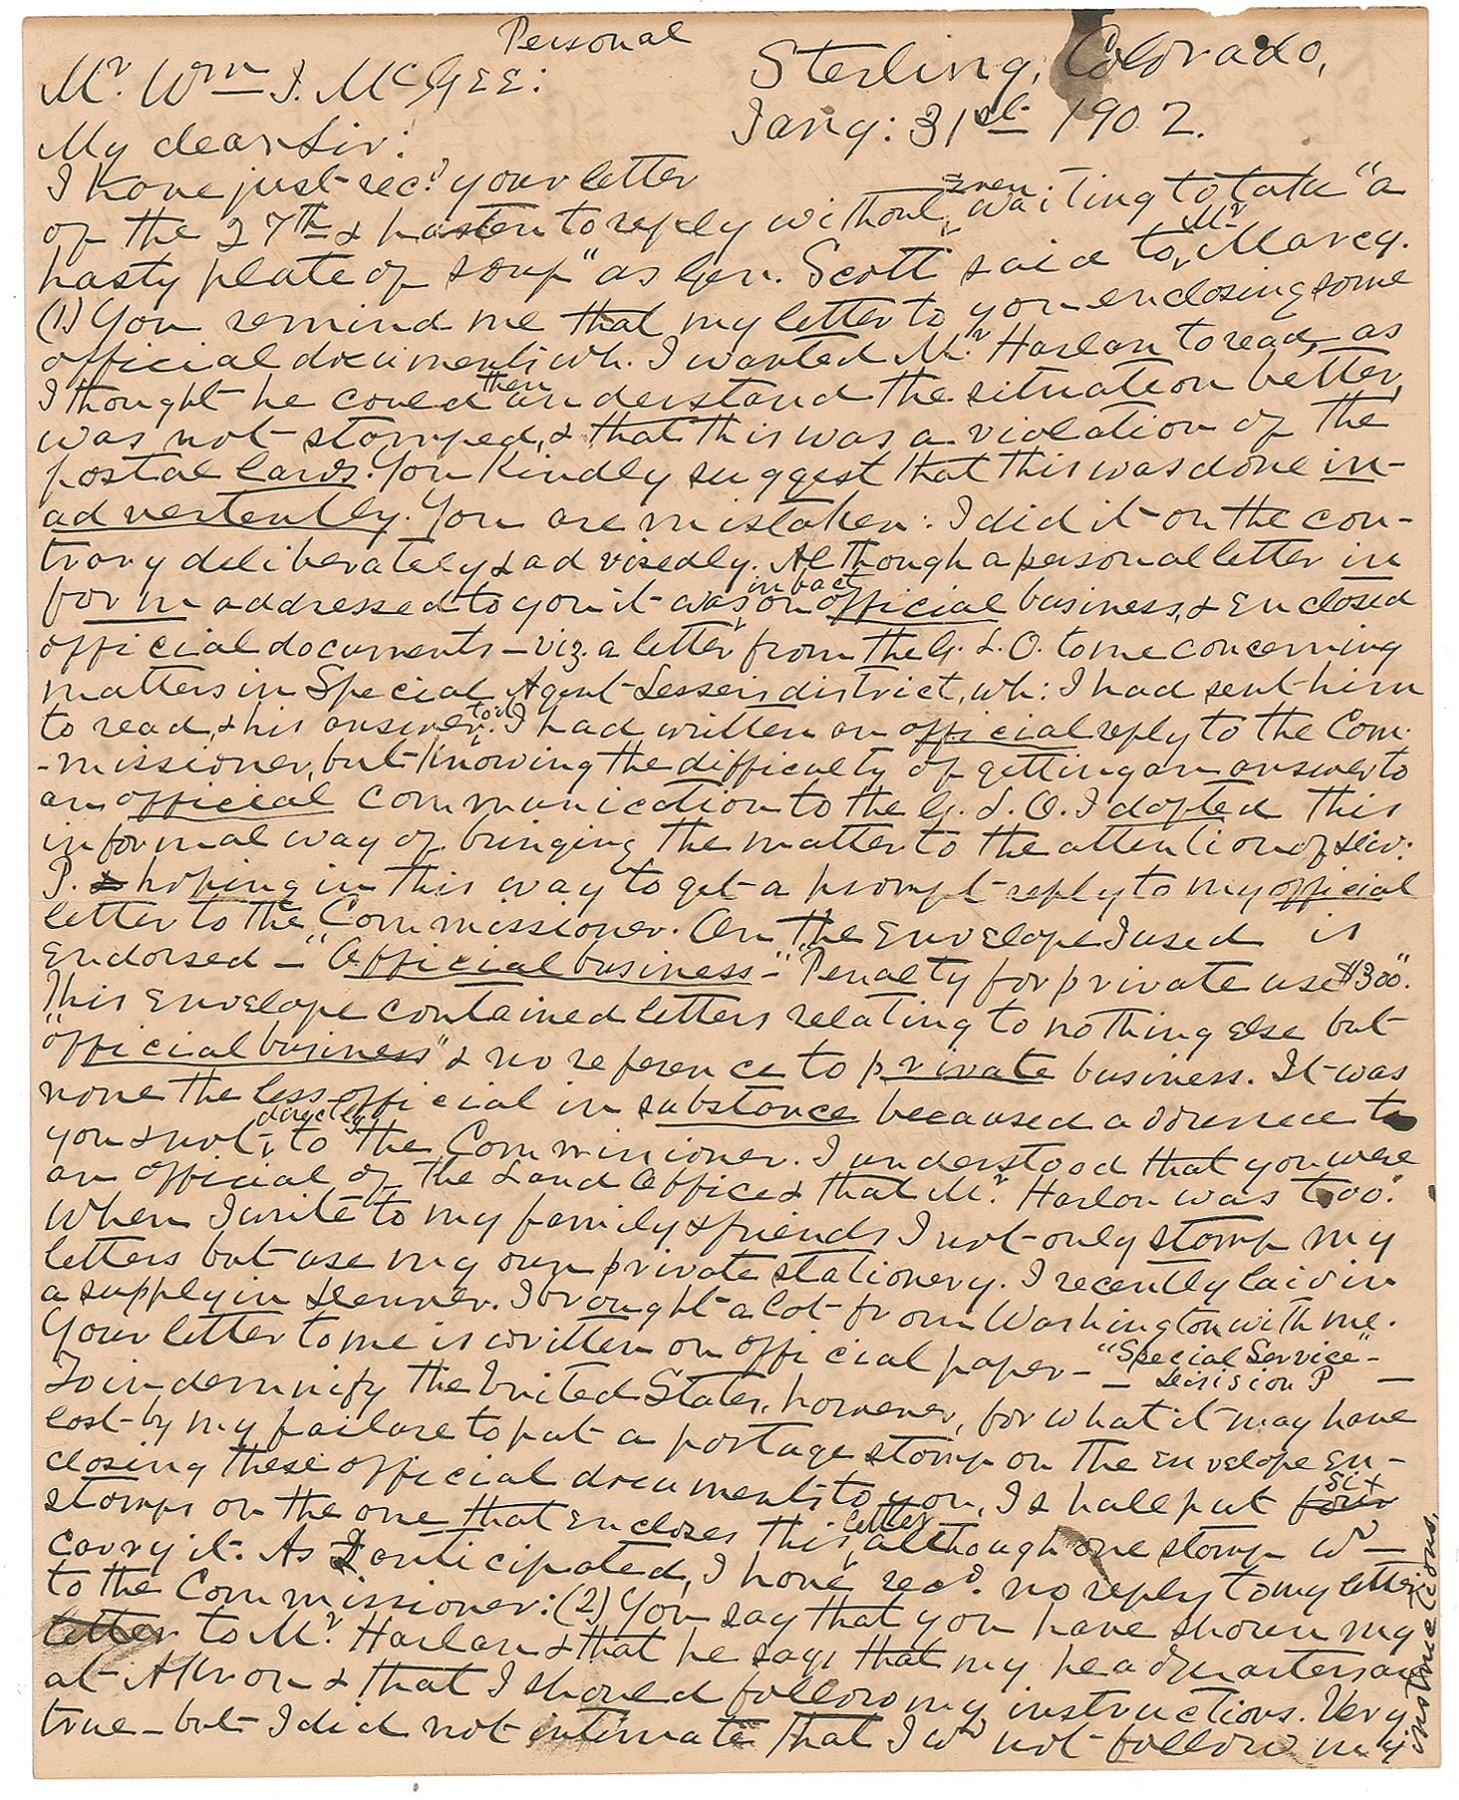 Personal
Mr. Wm J. McGEE:
Sterling, Colorado,
Jany: 31st 1902.
My dear Sir:
I have just rec'd your letter
of the 27th & hasten to reply without even waiting to take "a
hasty plate of soup" as Gen. Scott said to Mr Marcy.
(1) You remind me that my letter to you enclosing some
official documents wh. I wanted Mr. Harlan to read, as
I thought he could then understand the situation better,
was not stamped, & that this was a violation of the
postal laws. You kindly suggest that this was done in-
advertently. You are mistaken: I did it on the con-
trary deliberately & advisedly. Although a personal letter in
form addressed to you it was in fact on official business, & enclosed
official documents - viz. a letter from the G. L. O. to me concerning
matters in Special Agent Lesser's district, wh: I had sent him
to read, & his answer to it. I had written an official reply to the Com-
-missioner, but knowing the difficulty of getting an answer to
an official communication to the G. L. O. I adopted this
informal way of bringing the matter to the attention of Div:
P. & hoping in this way to get a prompt reply to my official
letter to the Commissioner. On the Envelope I used is
Endorsed - "Official business" - "Penalty for private use $300".
This Envelope contained letters relating to nothing else but
"official business" & no reference to private business. It was
none the less official in substance because addressed to
you & not directly to the Commissioner. I understood that you were
an official of the Land Office & that Mr. Harlan was too.
When I write to my family & friends I not only stamp my
letters but use my own private stationery. I recently laid in
a supply in Denver. I brought a lot from Washington with me.
Your letter to me is written on official paper - "Special Service" -
- Division P -
To indemnify the United States, however, for what it may have
lost by my failure to put a postage stamp on the Envelope en-
closing these official documents to you, I shall put four six
stamps on the one that encloses this letter, although one stamp wd
carry it. As I anticipated, I have recd. no reply to my letter
to the Commissioner: (2) You say that you have shown my
letter to Mr. Harlan & that he says that my headquarters are
at Akron & that I should follow my instructions. Very
true - but I did not intimate that I wd not follow my
instructions.